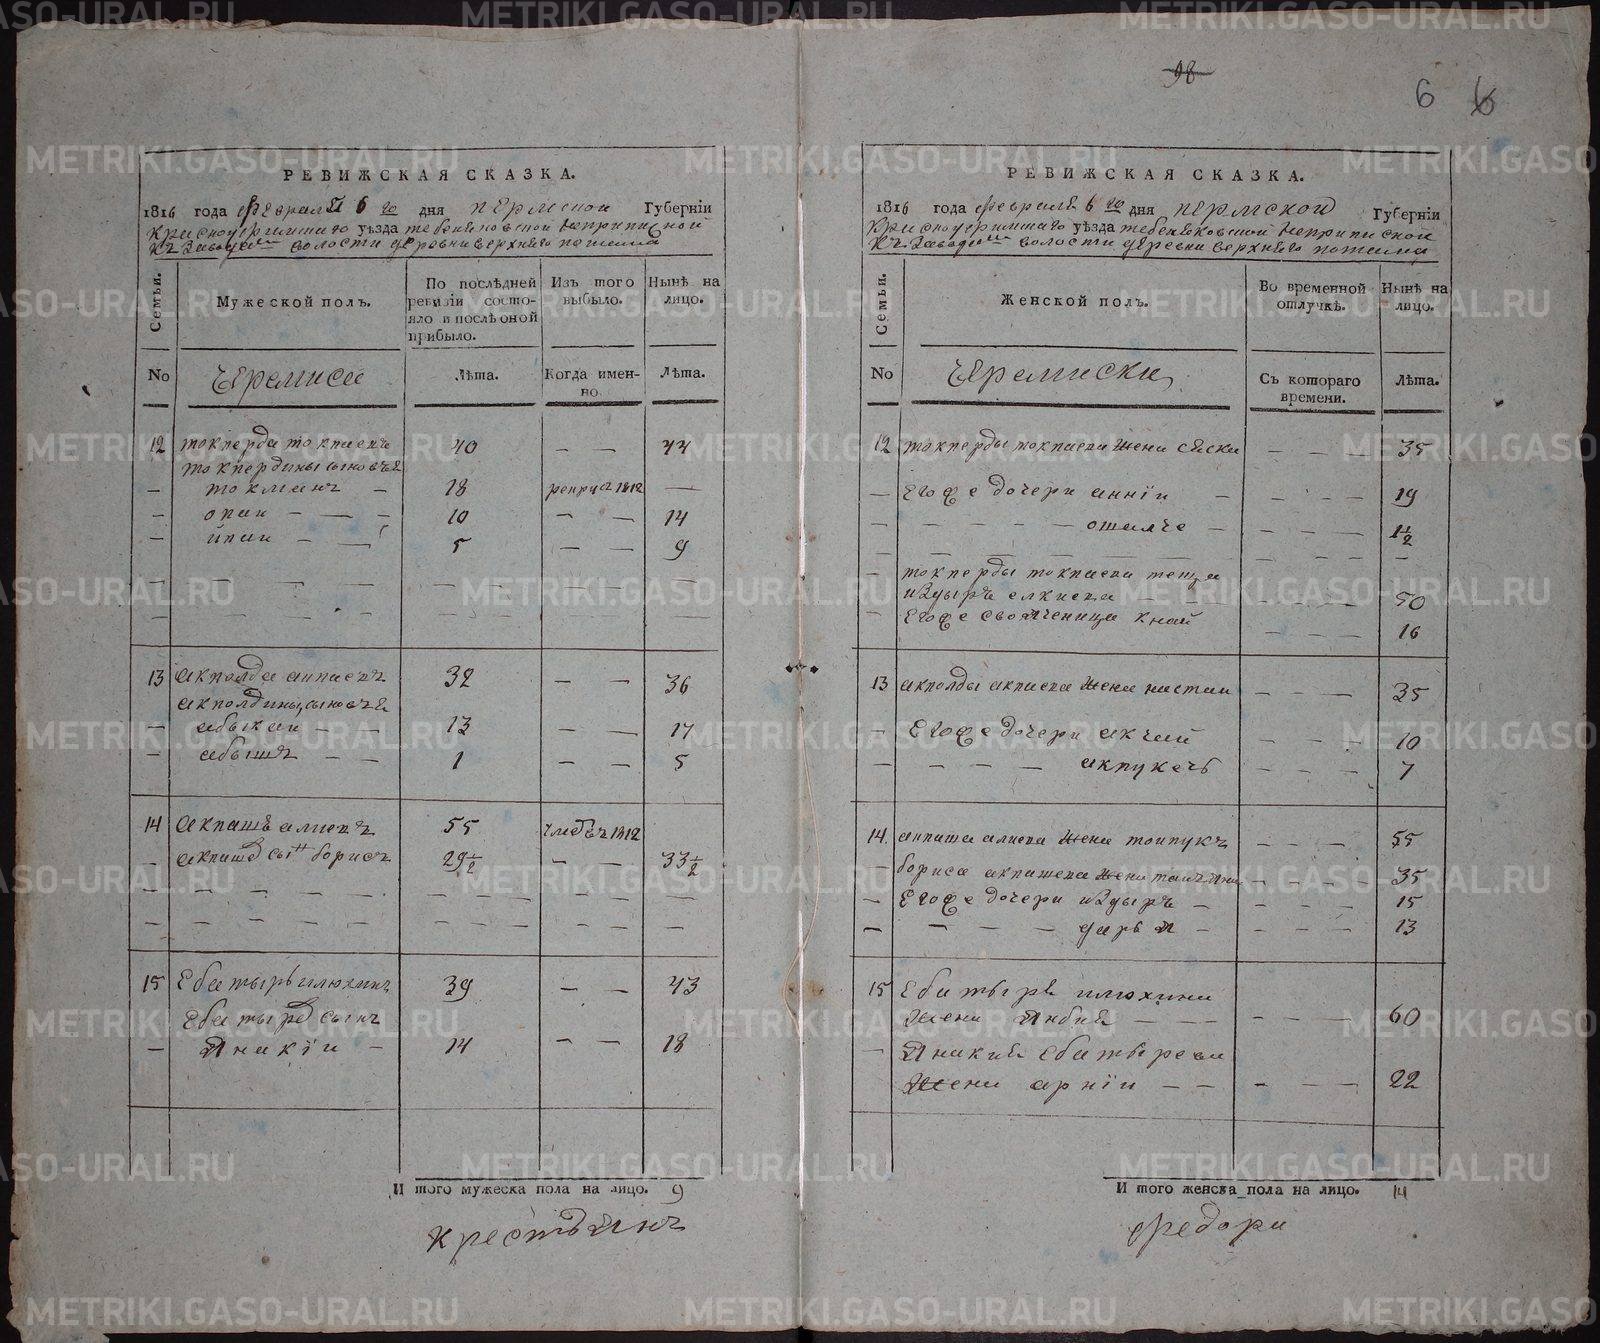 98
6 6
РЕВИЖСКАЯ СКАЗКА.
1816 года февраля 6 го дня пермской Губерніи
красноуфимскаго уѣзда тебеняковской неприписной
къ заводамъ волости деревни верхняго потама
Семьи.
Мужеской полъ.
По послѣдней ревизіи состояло и послѣ оной прибыло.
Изъ того выбыло.
Нынѣ на лицо.
No
Черемиса
Лѣта.
Когда именно.
Лѣта.
12 токперда токпаевъ 40 — — 44
токпердины сыновья
— токманъ — 18 рекрут 1812 —
— опаи — — — 10 — — 14
— ипаи — — 5 — — 9
13 акполда акпаевъ 32 — — 36
акполдины сыновья
— абыкаи — — 13 — — 17
— абышъ — — 1 — — 5
14 акпашъ алиевъ 55 умеръ 1812
— акпаше сынъ борисъ 29½ — — 33½
15 Ебатырь илюхинъ 39 — — 43
Ебатыре сынъ
— Янакіи — 14 — — 18
И того мужеска пола на лицо. 9
крестьянъ
РЕВИЖСКАЯ СКАЗКА.
1816 года февраля 6 го дня пермской Губерніи
красноуфимскаго уѣзда тебеняковской неприписной
къ заводамъ волости деревни верхняго потама
Семьи.
Женской полъ.
Во временной отлучкѣ.
Нынѣ на лицо.
No
Черемиски
Съ котораго времени.
Лѣта.
12 токперды токпаева жена сяска — — — 35
— Егоже дочери анніи — — — — 19
— — — — — — ошалче — — — — 1½
— токперды токпаева теща
издыръ елкиева — — — 50
— Егоже свояченица кнаи — — — 16
13 акполды акпаева жена настаи — — — 35
— Егоже дочери акчии — — — 10
— — — — — акпукечь — — — 7
14. акпаша алиева жена тоипукъ — — — 55
— бориса акпашева жена — — — 35
— Егоже дочери издыръ — — — — 15
— — — — — дарья — — — — 13
15 Ебатыря илюхина
жена Янбия — — — — — 60
— Янакия Ебатырева
жена арніи — — — — — 22
И того женска пола на лицо. 14
федора
METRIKI.GASO-URAL.RU